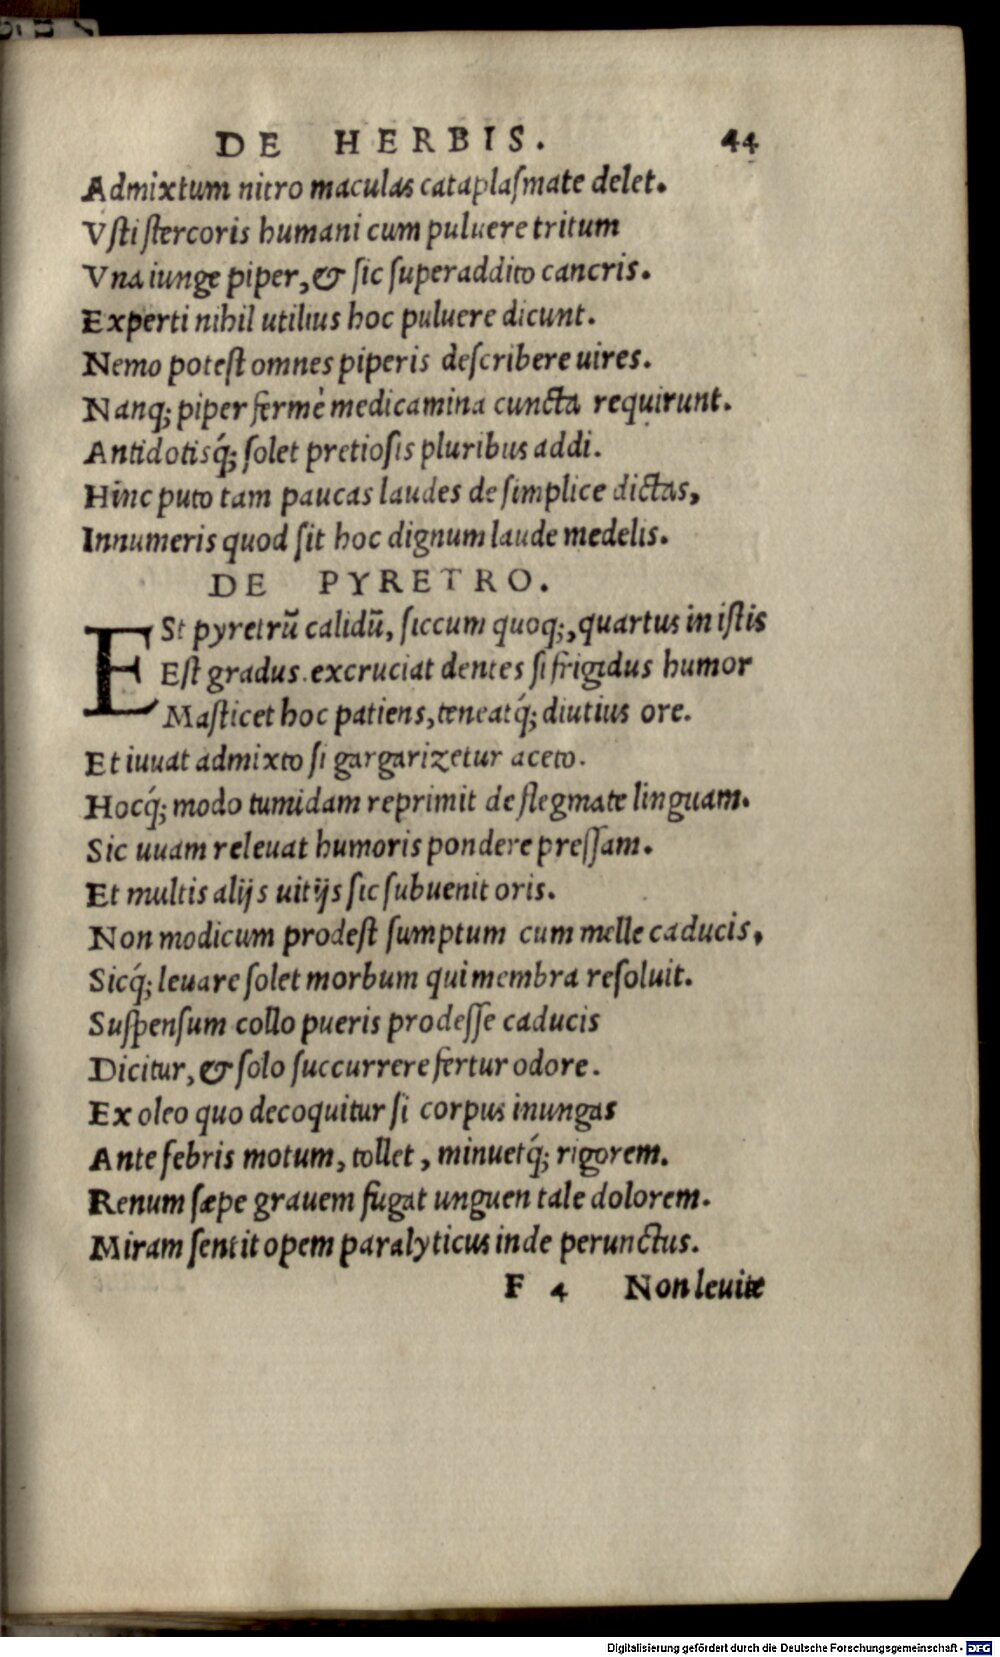 DE HERBIS. 44
Admixtum nitro maculas cataplaſmate delet.
Vſti ſtercoris humani cum puluere tritum
Vna iunge piper, & ſic ſuperaddito cancris.
Experti nihil utilius hoc puluere dicunt.
Nemo poteſt omnes piperis deſcribere uires.
Nanq; piper fermè medicamina cuncta requirunt.
Antidotisq́; ſolet pretioſis pluribus addi.
Hinc puto tam paucas laudes de ſimplice dictas,
Innumeris quod ſit hoc dignum laude medelis.
DE PYRETRO.
ESt pyretrũ calidũ, ſiccum quoq;, quartus in iſtis
Eſt gradus. excruciat dentes ſi frigidus humor
Maſticet hoc patiens, teneatq́; diutius ore.
Et iuuat admixto ſi gargarizetur aceto.
Hocq́; modo tumidam reprimit de flegmate linguam.
Sic uuam releuat humoris pondere preſſam.
Et multis alijs uitijs ſic ſubuenit oris.
Non modicum prodeſt ſumptum cum melle caducis,
Sicq́; leuare ſolet morbum qui membra reſoluit.
Suſpenſum collo pueris prodeſſe caducis
Dicitur, & ſolo ſuccurrere fertur odore.
Ex oleo quo decoquitur ſi corpus inungas
Ante febris motum, tollet, minuetq́; rigorem.
Renum ſæpe grauem fugat unguen tale dolorem.
Miram ſentit opem paralyticus inde perunctus.
F 4 Non leuite
Digitalisierung gefördert durch die Deutsche Forschungsgemeinschaft - DFG